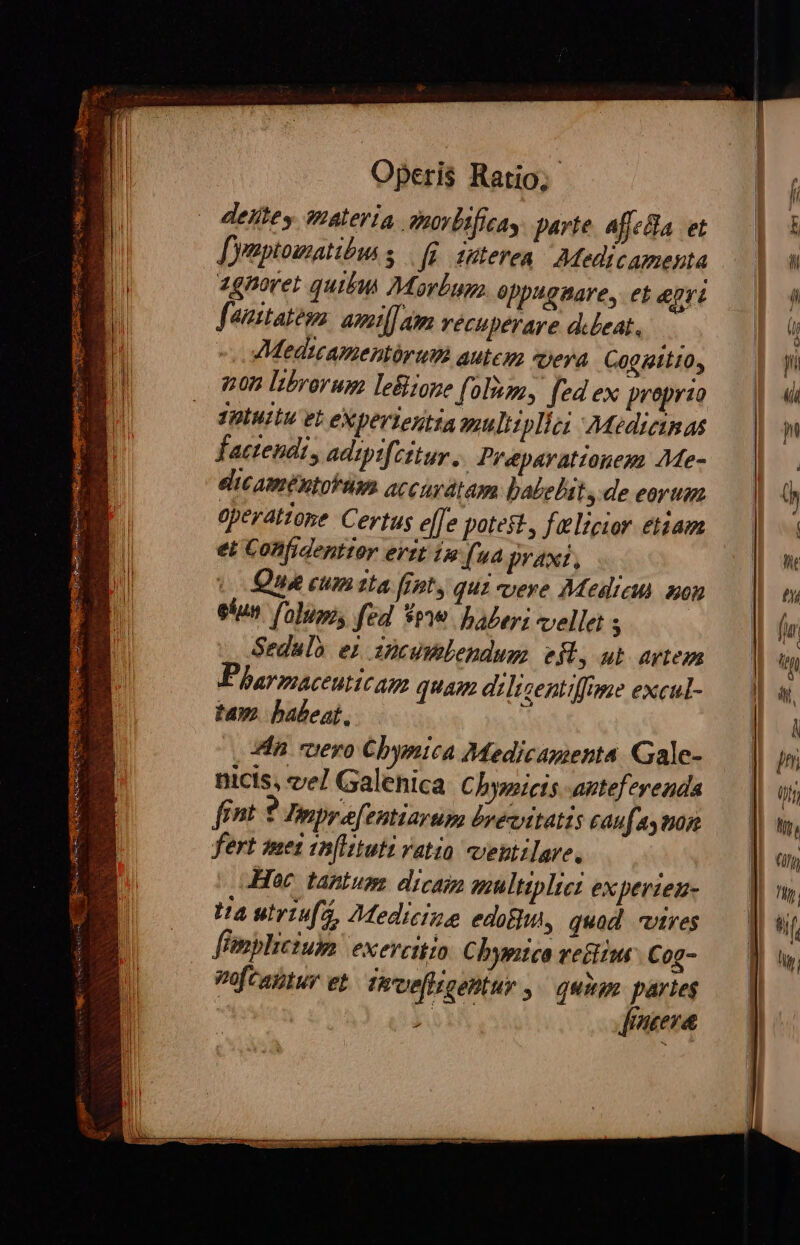 Operis Ratio.
dente, materia morbifica, parte affecta et
ſymptomatibus; ſi interea Medicamenta
ignoret quibus Morbum oppugnare, et ægri
ſanitatem amiſſam recuperare debeat.
Medicamentorum autem vera Cognitio,
non librorum lectione ſolùm, ſed ex proprio
intuitu et experientia multiplici Medicinas
faciendi, adipiſcitur. Præparationem Me-
dicamentorùm accuratam habebit, de eorum
operatione Certus eſſe poteſt, fælicior etiam
et Confidentior erit in ſua praxi,
Quæ cum ita ſint, qui vere Medicus non
ſolum, ſed haberi vellet;
Sedulò ei incumbendum eſt, ut artem
Pharmaceuticam quam diligentiſſime excul-
tam habeat.
An vero Chymica Medicamenta Gale-
nicis, vel Galenica Chymicis anteferenda
ſint? Impræſentiarum brevitatis cauſa, non
fert mei inſtituti ratio ventilare.
Hoc tantum dicam multiplici experien-
tia utriuſq́, Medicinæ edoctus, quod vires
ſimplicium exercitio Chymico rectius Cog-
noſcantur et inveſtigentur, quùm partes
ſinceræ